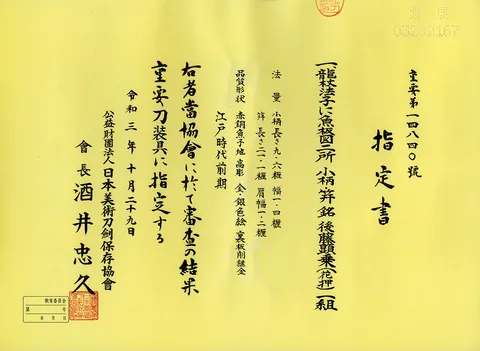 重要第一四八四〇號
指定書
一、龍杖法子に魚籃図二所 小柄・笄 銘 後藤顕乗(花押) 一組
法量 小柄 長さ九・六糎 幅一・四糎
笄 長さ二一・一糎 肩幅一・二糎
品質形状 赤銅魚子地 高彫 金・銀色絵 裏板削継金
江戸時代前期
右者當協會に於て審査の結果
重要刀装具に指定する
令和三年十月二十九日
公益財團法人日本美術刀剣保存協會
會長 酒井忠久
第 号
年 月 日